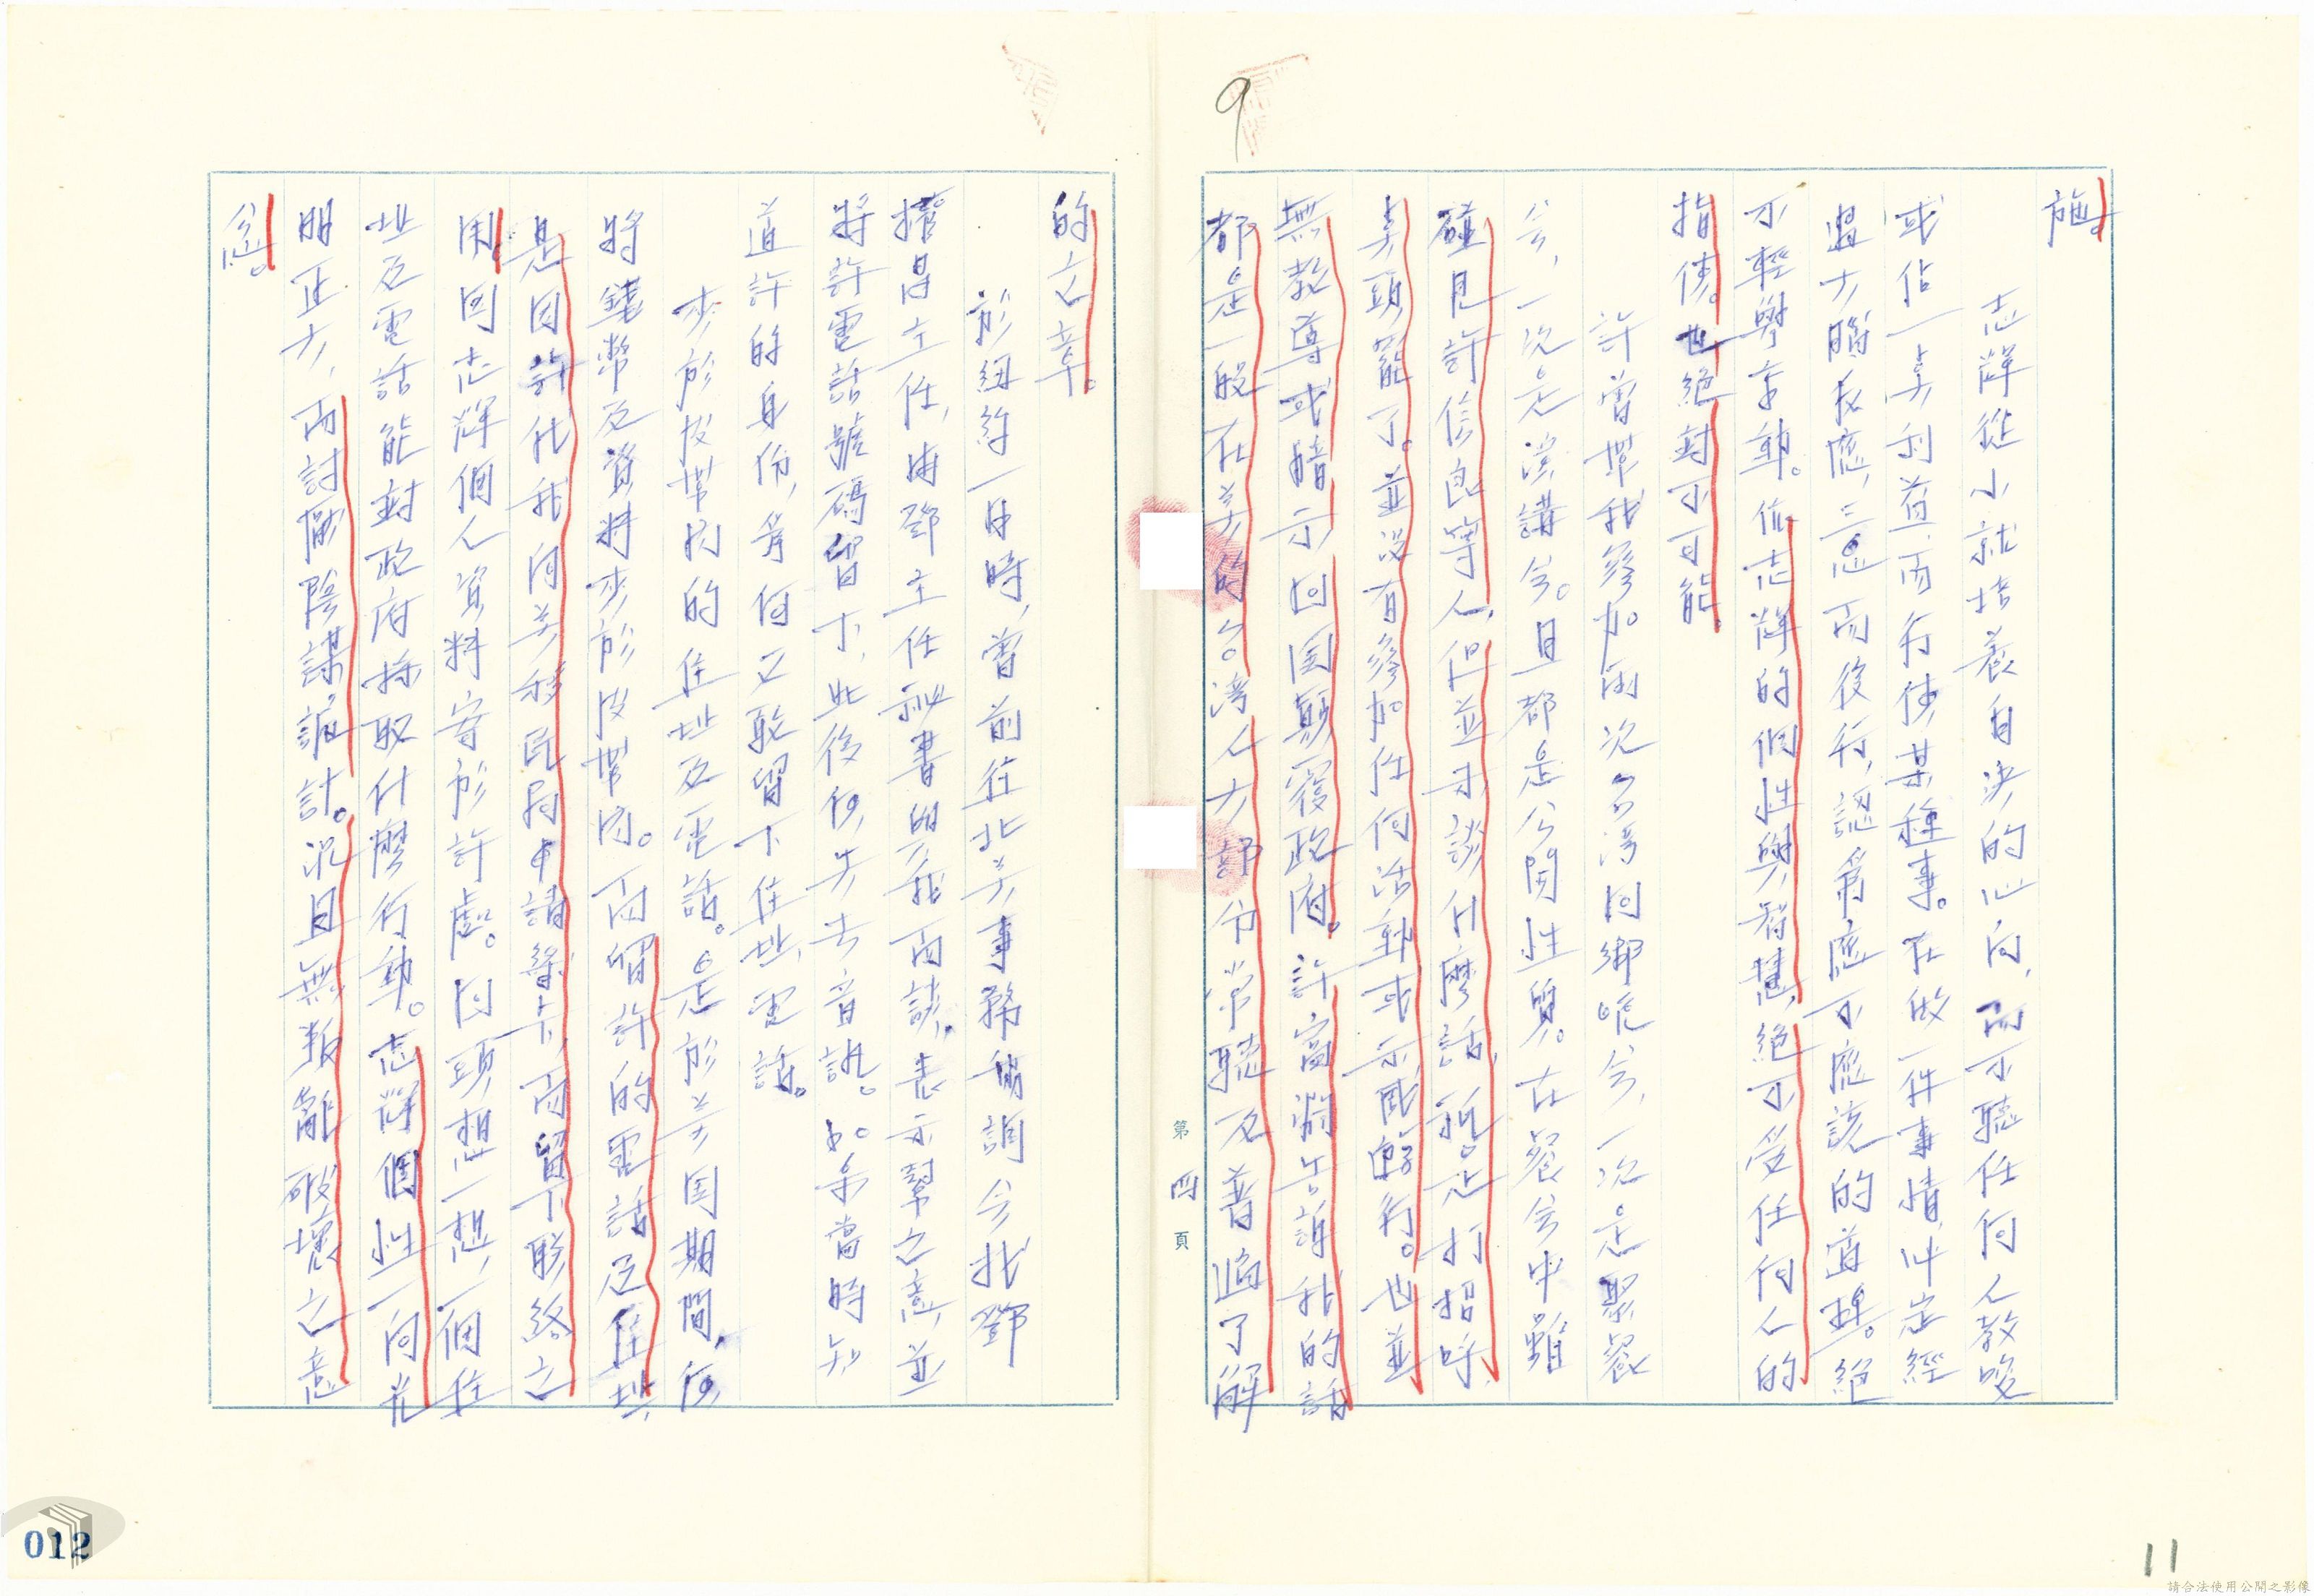 9
施。
志輝從小就培養自決的志向，而不聽任何人教唆
或佔一點利益而行使某種事。在做一件事情，必定經
過大腦反應，三思而後行，認為應不應該的道理。絕
不輕舉妄動。依志輝的個性與智慧，絕不受任何人的
指使。也絕對不可能。
許曾帶我參加兩次台湾同鄉晚会，一次是聚餐
会，一次是演講会。且都是公開性質。在餐会中雖
碰見許信良等人，但並未談什麼話，祇是打招呼，
点頭罷了。並沒有參加任何活動或示威遊行。也並
無教導或暗示回国顛覆政府。許富淵告訴我的話
都是一般在美的台湾人大部分常聽及普遍了解
第四頁
的文章。
於紐約一日時，曾前往北美事務協調会找鄧
擋昌主任，由鄧主任秘書與我面談，表示幫之意，並
將許電話號碼留下，此後仍失去音訊。如果當時知
道許的身份，為何又敢留下住址，電話。
夾於皮帶扣的住址及電話。是於美国期間，仍
將錢幣及資料夾於皮帶內。而留許的電話及住址
是因許代我向美移民局申請綠卡，而留下聯絡之
用。回志輝個人資料寄於許處。回頭想一想，一個住
址及電話能對政府採取什麼行動。志輝個性一向光
明正大，而討厭陰謀詭計。況且無叛亂破壞之意
念。
012
11
請合法使用公開之影像